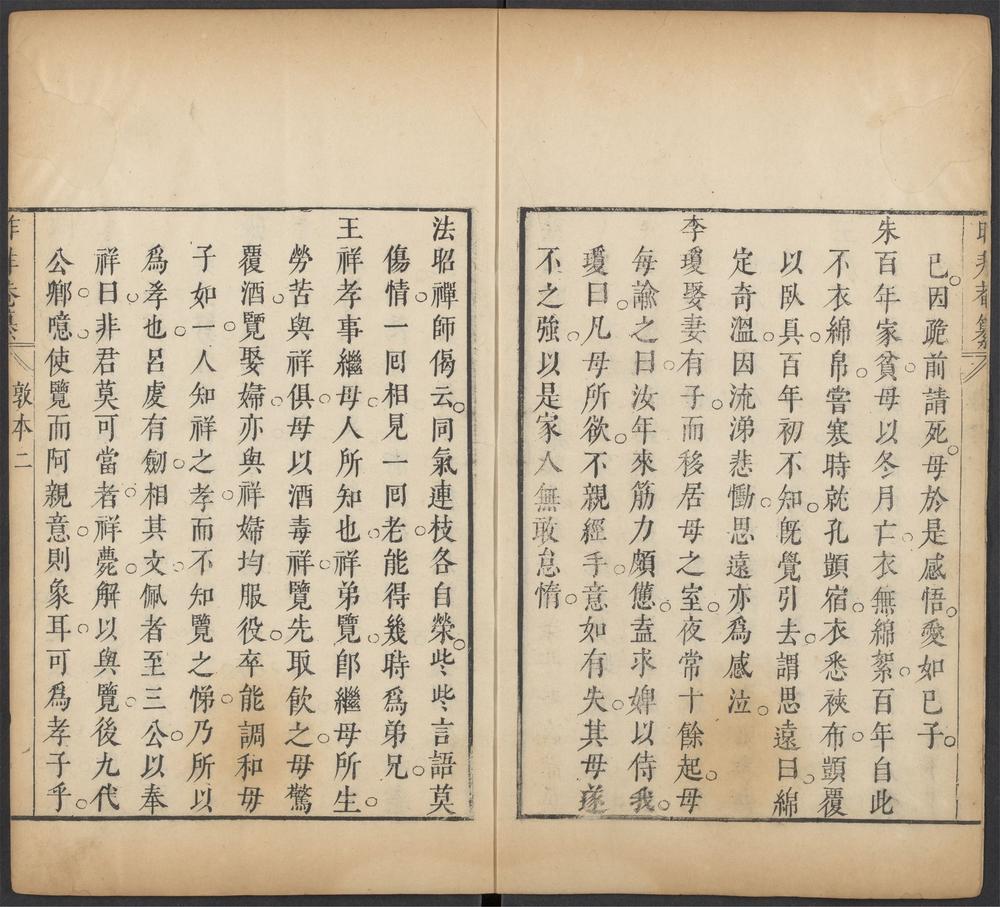 已因跪前請死母於是感悟愛如已子
朱百年家貧母以冬月亡衣無綿絮百年自此
不衣綿帛嘗寒時就孔顗宿衣悉裌布顗覆
以臥具百年初不知旣覺引去謂思遠曰綿
定奇溫因流涕悲慟思遠亦爲感泣
李瓊娶妻有子而移居母之室夜常十餘起母
每諭之曰汝年來筋力頗憊盍求婢以侍我
瓊曰凡母所欲不親經手意如有失其母遂
不之強以是家人無敢怠惰
法昭禪師偈云同氣連枝各自榮些些言語莫
傷情一回相見一回老能得幾時爲弟兄
王祥孝事繼母人所知也祥弟覽卽繼母所生
勞苦與祥俱母以酒毒祥覽先取飲之母驚
覆酒覽娶婦亦與祥婦均服役卒能調和母
子如一人知祥之孝而不知覽之悌乃所以
爲孝也呂虔有劒相其文佩者至三公以奉
祥曰非君莫可當者祥薨解以與覽後九代
公卿噫使覽而阿親意則象耳可爲孝子乎
敦本二